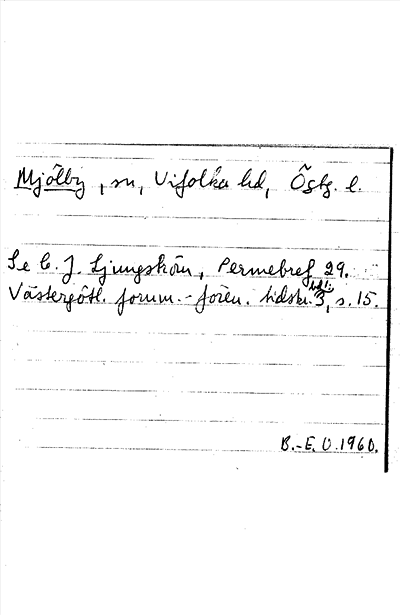 Mjölby, sn, Vifolka hd, Östg. l.
Se C. J. Ljungström, Permebref 29.
Västergötl. fornm.-fören. tidskr. 3, s. 15.
B.-E. O. 1960.